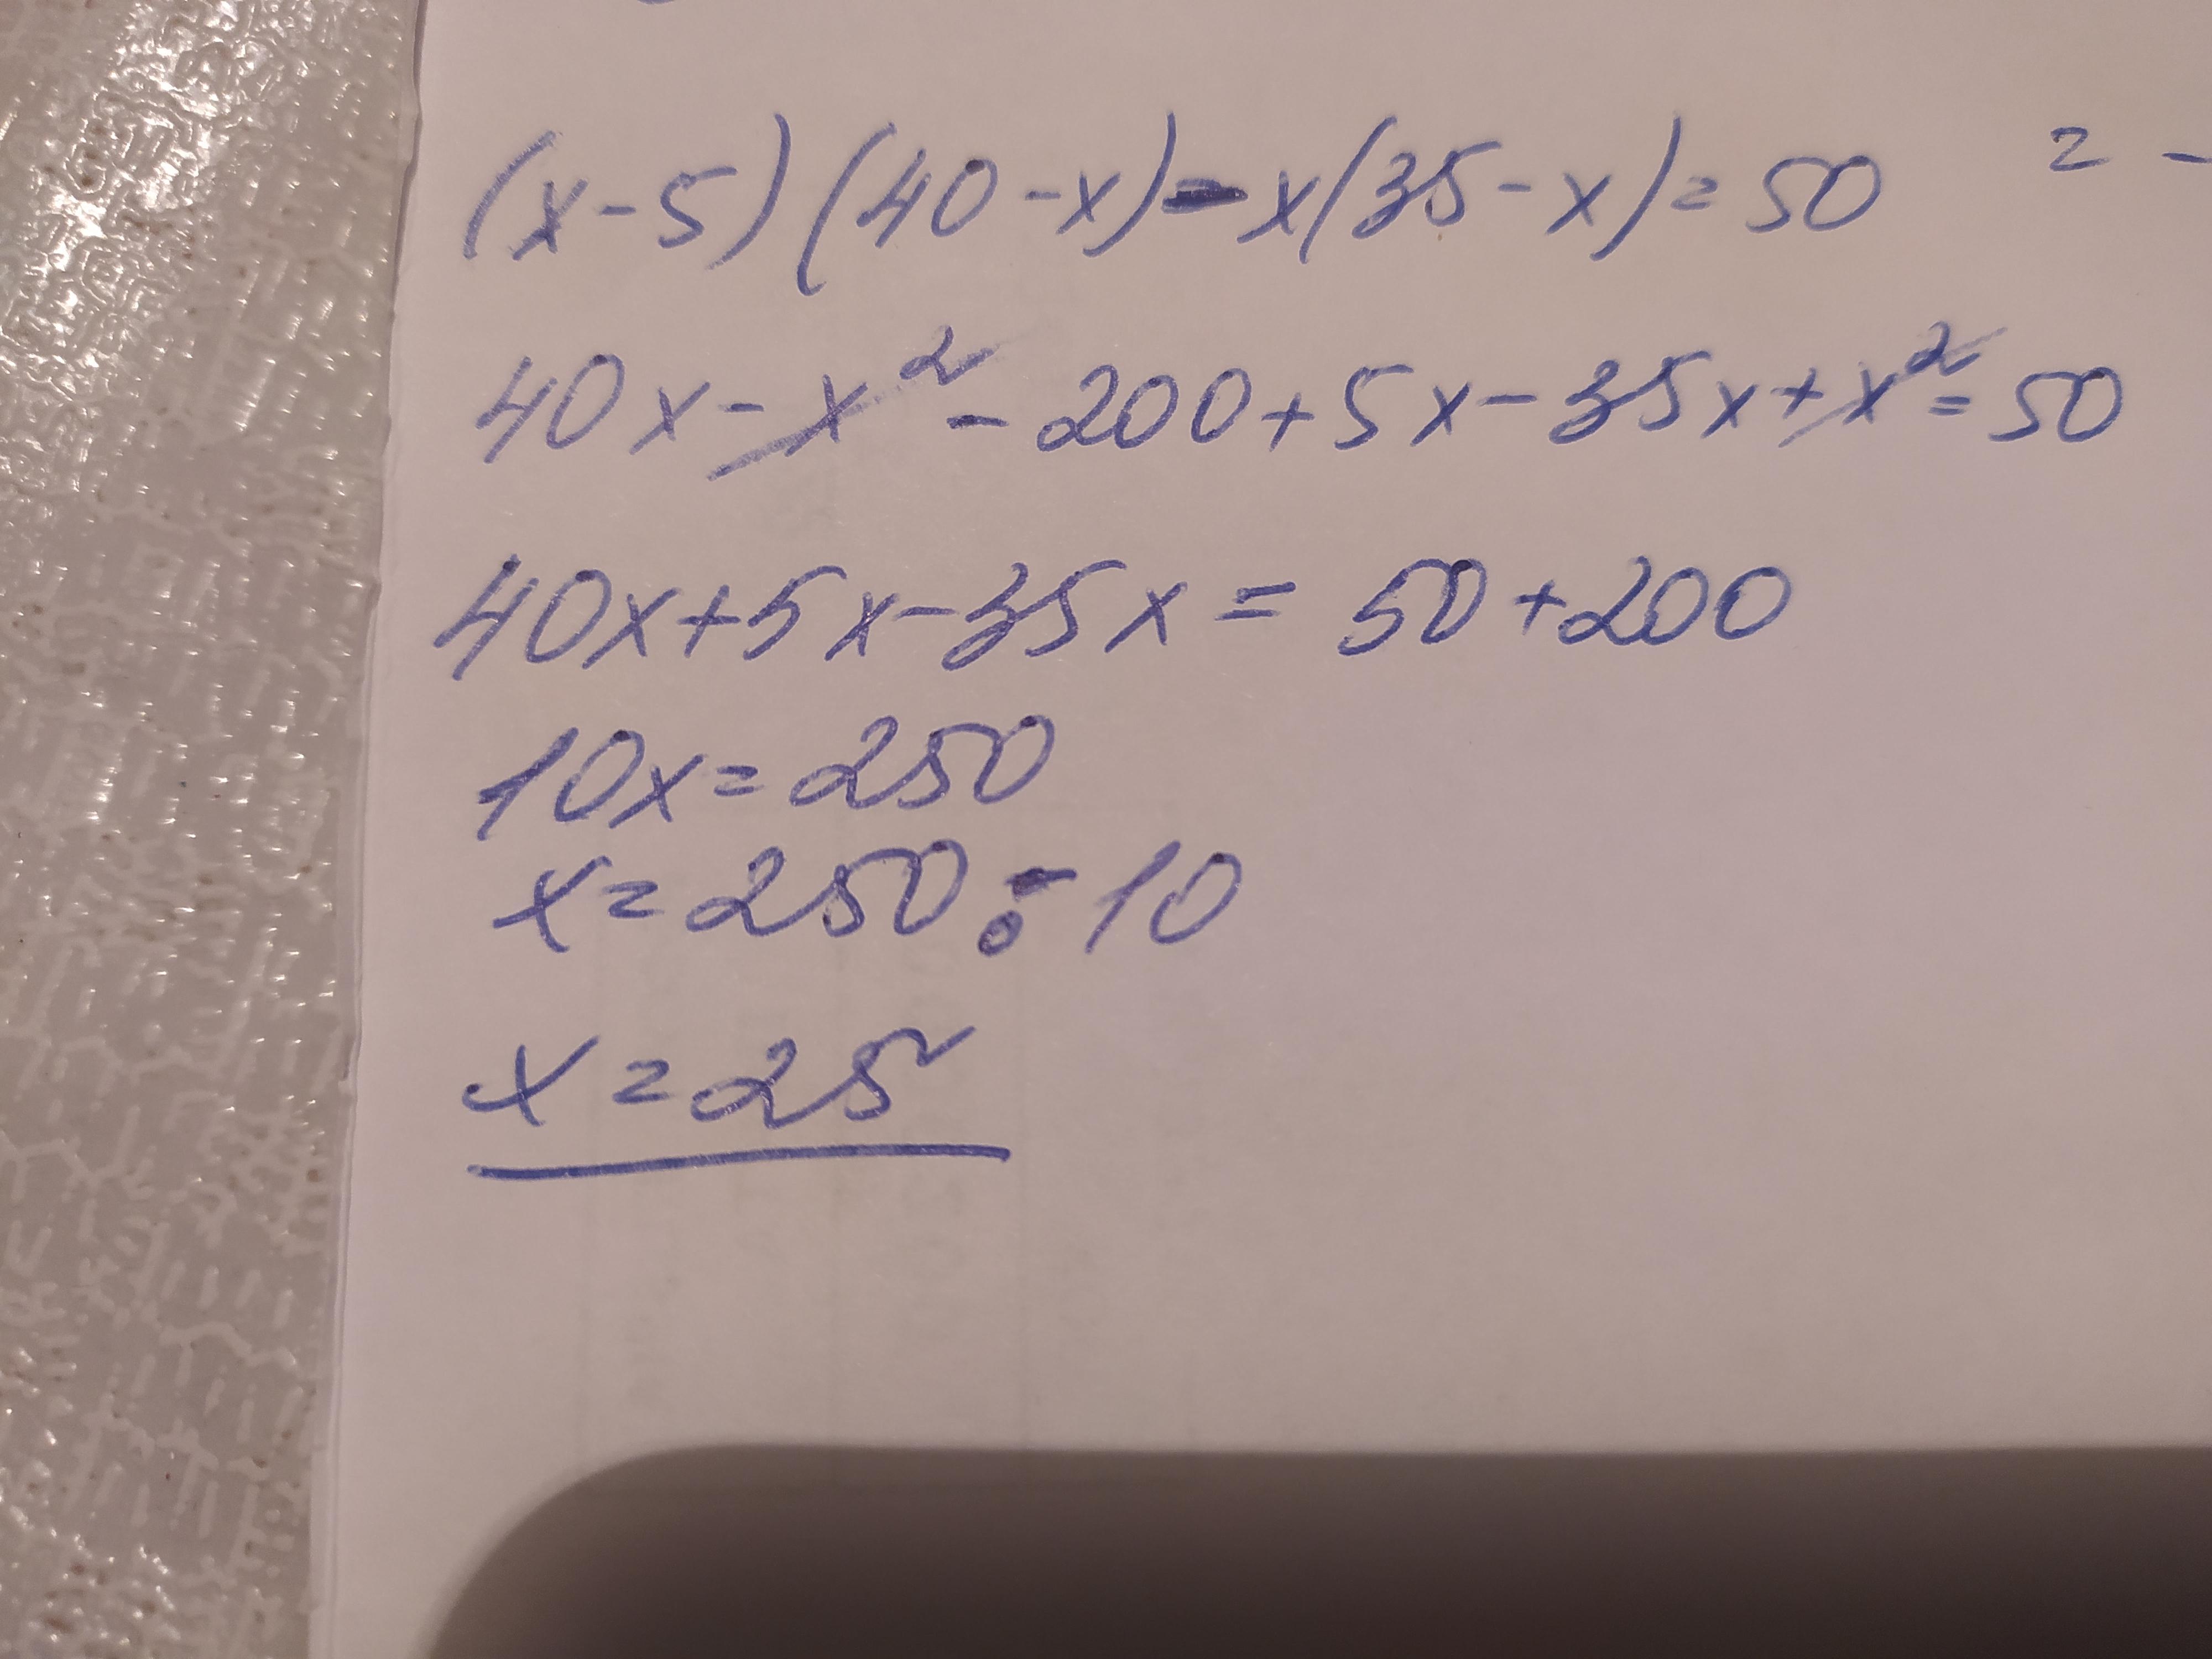 (x-5)(40-x)-x(35-x)=50 = -
40x-x²-200+5x-35x+x²=50
40x+5x-35x=50+200
10x=250
x=250:10
x=25